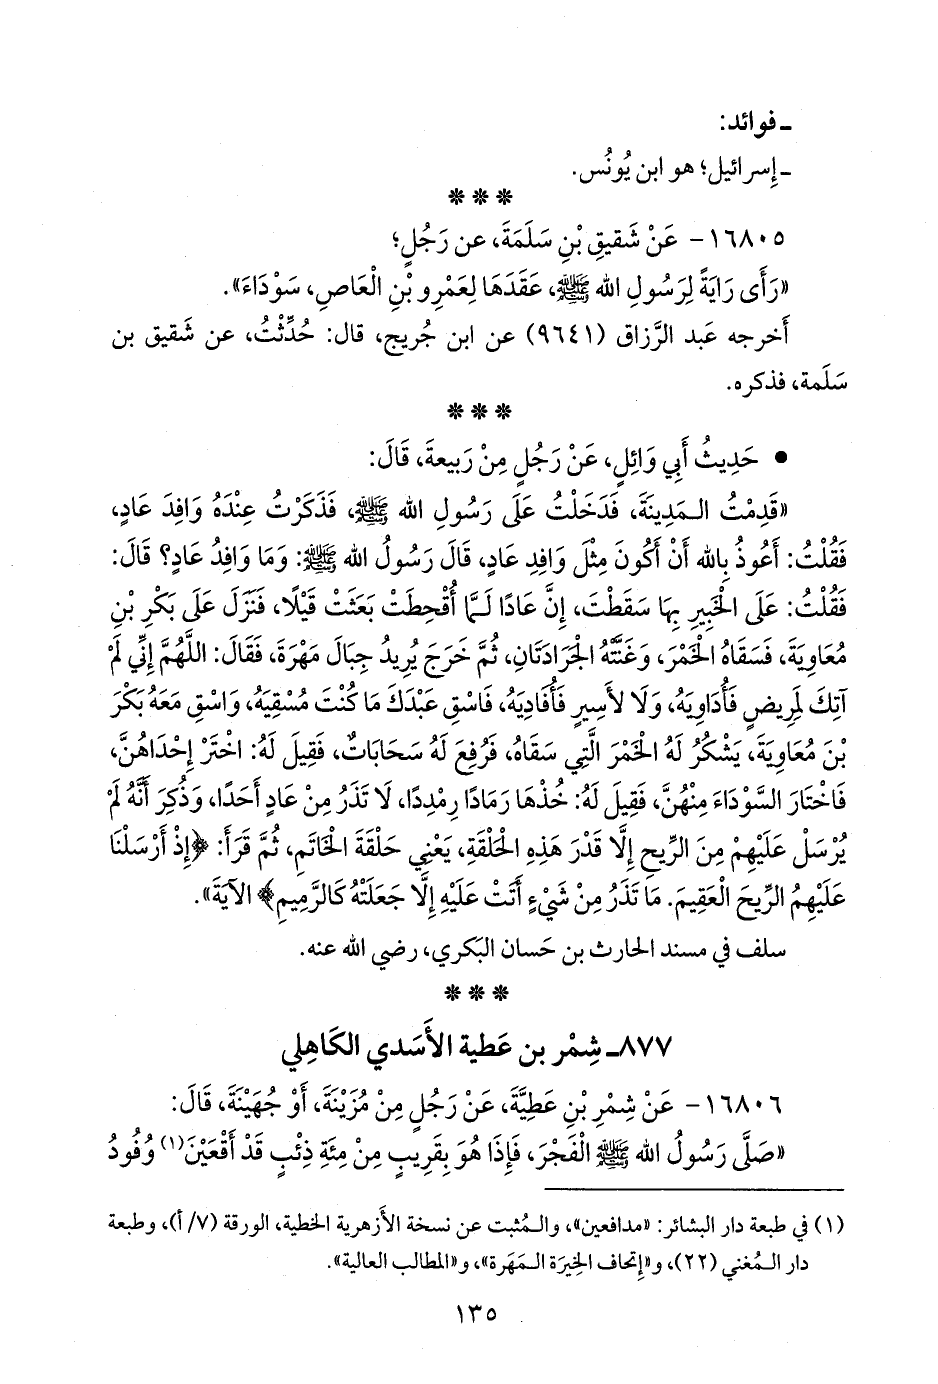 ـ فوائد:
ـ إسرائيل؛ هو ابن يُونُس.
***
١٦٨٠٥- عَنْ شَقِيقِ بْنِ سَلَمَةَ، عن رَجُلٍ؛
«رَأَى رَايَةً لِرَسُولِ الله ﷺ، عَقَدَهَا لِعَمْرِو بْنِ الْعَاصِ، سَوْدَاءَ».
أَخرجه عَبد الرَّزاق (٩٦٤١) عن ابن جُريج، قال: حُدِّثْتُ، عن شَقيق بن
سَلَمة، فذكره.
***
• حَدِيثُ أَبِي وَائِلٍ، عَنْ رَجُلٍ مِنْ رَبِيعةَ، قَالَ:
«قَدِمْتُ الـمَدِينَةَ، فَدَخَلْتُ عَلَى رَسُولِ الله ﷺ، فَذَكَرْتُ عِنْدَهُ وَافِدَ عَادٍ،
فَقُلْتُ: أَعُوذُ بِالله أَنْ أَكُونَ مِثْلَ وَافِدِ عَادٍ، قَالَ رَسُولُ الله ﷺ: وَمَا وَافِدُ عَادٍ؟ قَالَ:
فَقُلْتُ: عَلَى الْخَبِيرِ بِهَا سَقَطْتَ، إِنَّ عَادًا لَـمَّا أُقْحِطَتْ بَعَثَتْ قَيْلًا، فَنَزَلَ عَلَى بَكْرِ بْنِ
مُعَاوِيَةَ، فَسَقَاهُ الْخَمْرَ، وَغَنَّتْهُ الْجَرَادَتَانِ، ثُمَّ خَرَجَ يُرِيدُ جِبَالَ مَهْرَةَ، فَقَالَ: اللَّهُمَّ إِنِّي لَمْ
آتِكَ لِمَرِيضٍ فَأُدَاوِيَهُ، وَلَا لأَسِيرٍ فَأُفَادِيَهُ، فَاسْقِ عَبْدَكَ مَا كُنْتَ مُسْقِيَهُ، وَاسْقِ مَعَهُ بَكْرَ
بْنَ مُعَاوِيَةَ، يَشْكُرُ لَهُ الْخَمْرَ الَّتِي سَقَاهُ، فَرُفِعَ لَهُ سَحَابَاتٌ، فَقِيلَ لَهُ: اخْتَرْ إِحْدَاهُنَّ،
فَاخْتَارَ السَّوْدَاءَ مِنْهُنَّ، فَقِيلَ لَهُ: خُذْهَا رَمَادًا رِمْدِدًا، لَا تَذَرُ مِنْ عَادٍ أَحَدًا، وَذُكِرَ أَنَّهُ لَمْ
يُرْسَلْ عَلَيْهِمْ مِنَ الرِّيحِ إِلَّا قَدْرَ هَذِهِ الْحَلْقَةِ، يَعْنِي حَلْقَةَ الْخَاتَمِ، ثُمَّ قَرَأَ: ﴿إِذْ أَرْسَلْنَا
عَلَيْهِمُ الرِّيحَ الْعَقِيمَ. مَا تَذَرُ مِنْ شَيْءٍ أَتَتْ عَلَيْهِ إِلَّا جَعَلَتْهُ كَالرَّمِيمِ﴾ الآيَةَ».
سلف في مسند الحارث بن حَسان البَكري، رضي الله عنه.
***
٨٧٧ـ شِمْر بن عَطية الأَسَدي الكَاهِلي
١٦٨٠٦- عَنْ شِمْرِ بْنِ عَطِيَّةَ، عَنْ رَجُلٍ مِنْ مُزَيْنَةَ، أَوْ جُهَيْنَةَ، قَالَ:
«صَلَّى رَسُولُ الله ﷺ الْفَجْرَ، فَإِذَا هُوَ بِقَرِيبٍ مِنْ مِئَةِ ذِئْبٍ قَدْ أَقْعَيْنَ(١) وُفُودُ
(١) في طبعة دار البشائر: «مدافعين»، والـمُثبت عن نسخة الأزهرية الخطية، الورقة (٧/ أ)، وطبعة
دار الـمُغني (٢٢)، و«إتحاف الخِيرَة الـمَهَرة»، و«المطالب العالية».
١٣٥